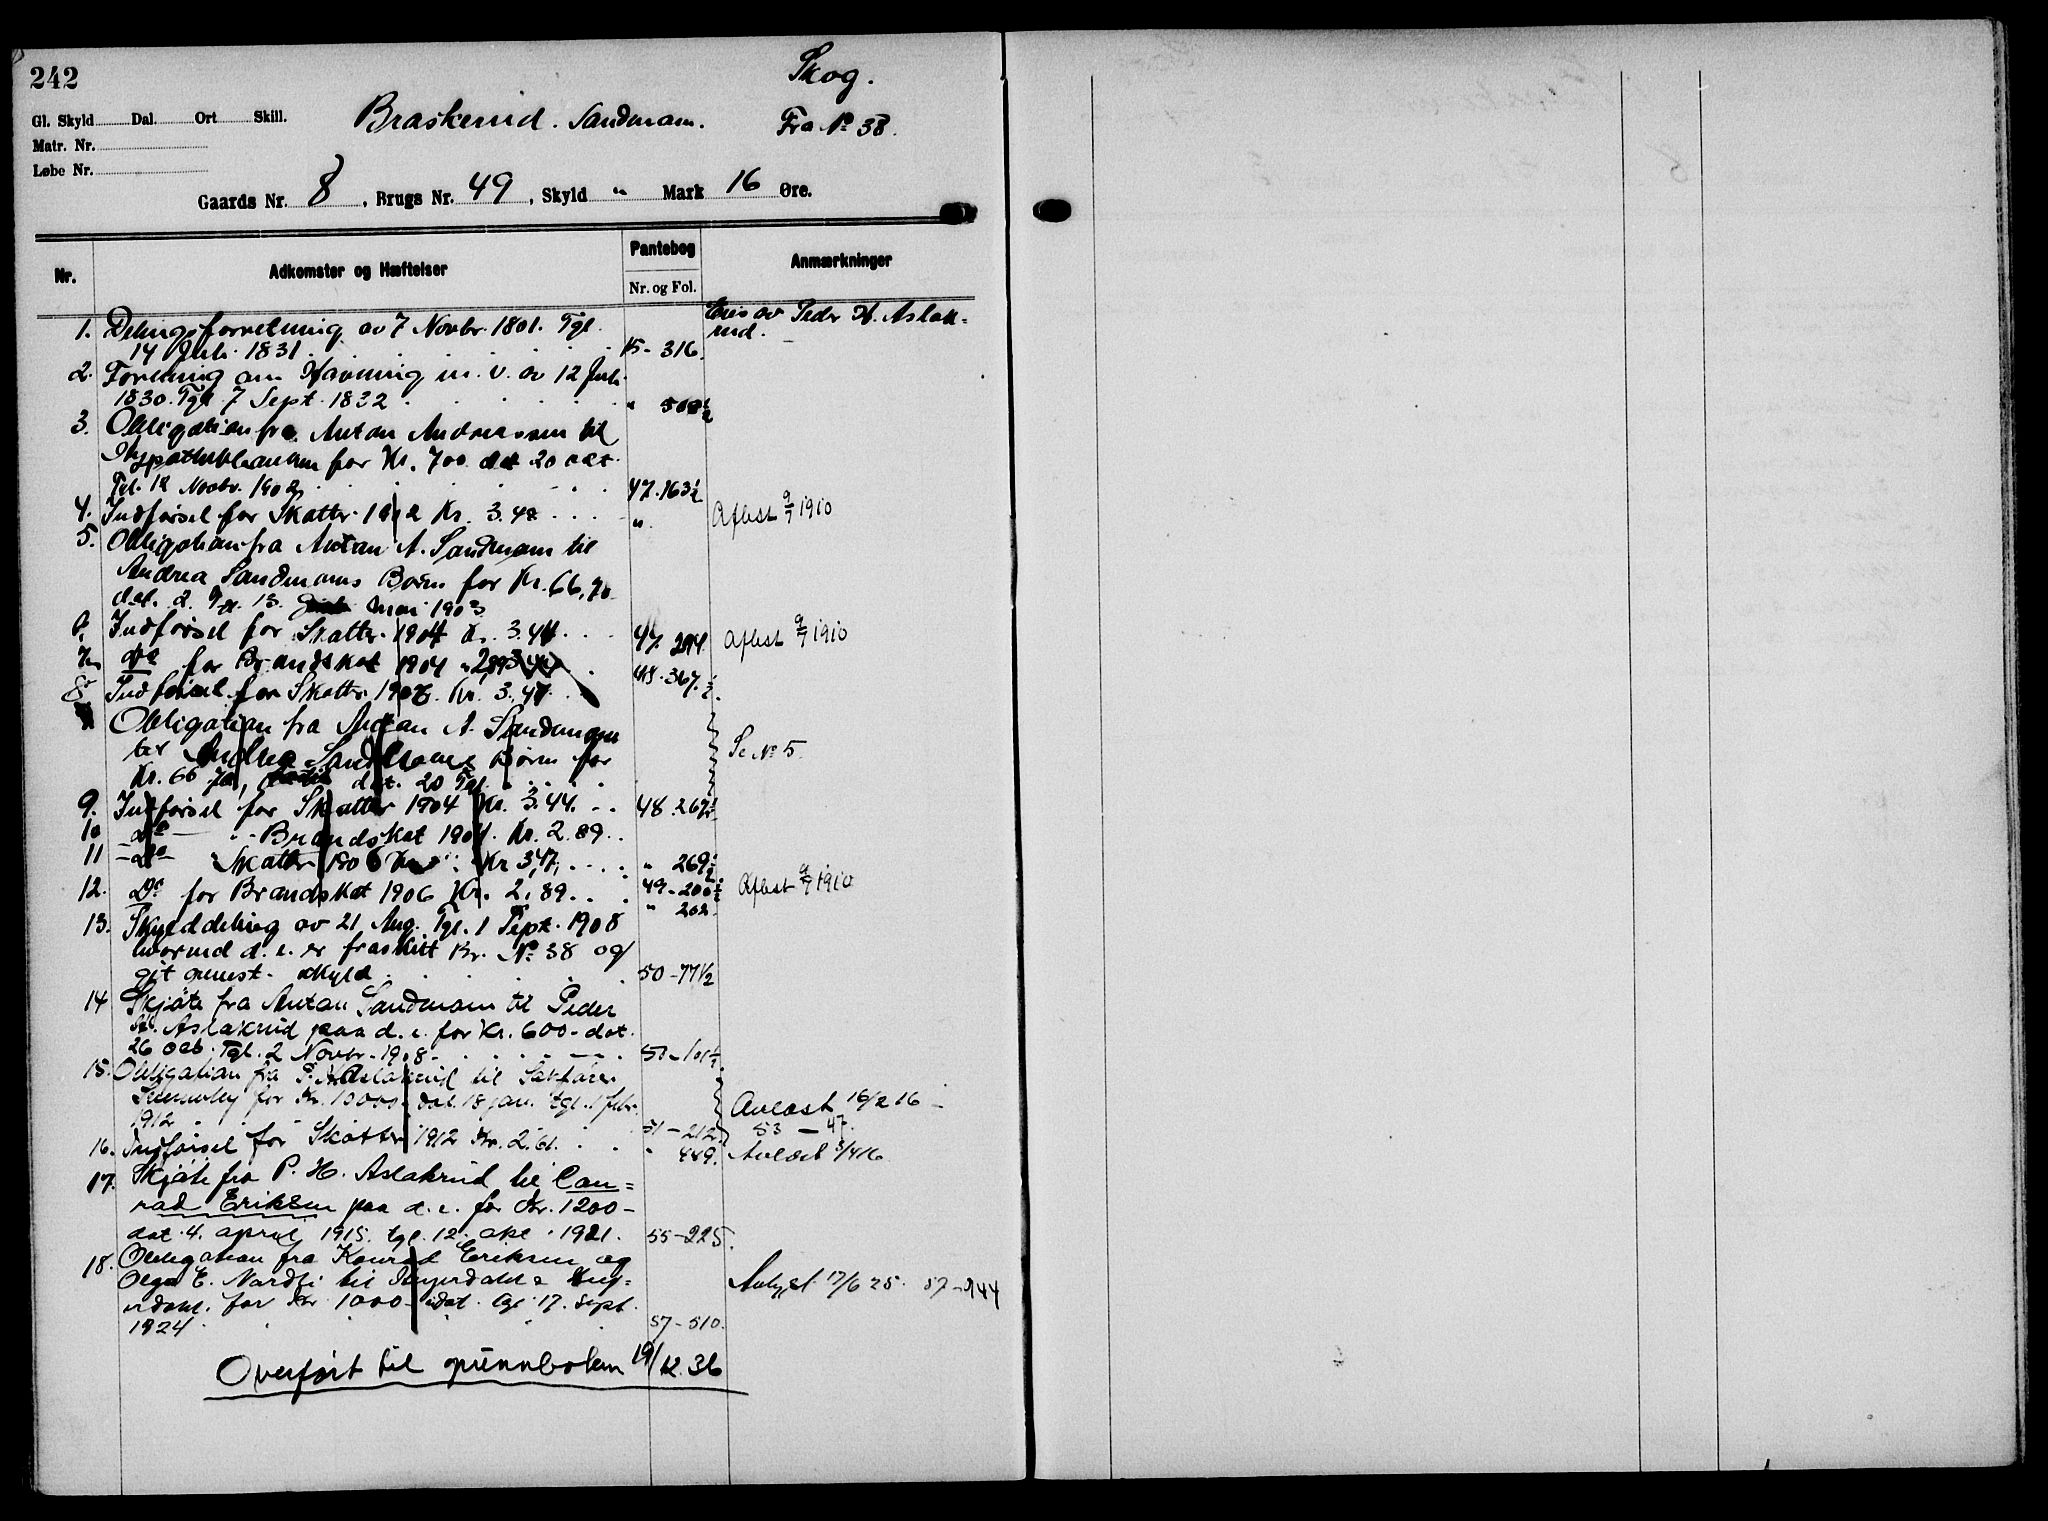 242
Skog.
Gl. Skyld Dal. Ort Skill.
Braskerud. Sandmoen.
Fra No 38.
Matr. Nr.
Løbe Nr.
Gaards Nr. 8, Brugs Nr. 49, Skyld " Mark 16 Øre.
Nr.
Adkomster og Hæftelser
Pantebog
Nr. og Fol.
Anmærkninger
Eies av Peder H. Aslak=
rud.
1. Delingsforretning av 7 Novbr. 1801. Tgl.
14 Juli. 1831. 15 - 316.
2. Forening om Havning m. v. av 12 Juli
1830. Tgl. 7 Sept. 1832 " 508½
3. Obligation fra Anton Andreassen til
Hypothekbanken for Kr. 700 dat 20 oct.
Tgl. 12 Novbr. 1902 47. 163½
4. Indførsel for Skatter 1902 Kr. 3.42 " Aflest 9/7 1910
5. Obligation fra Anton A. Sandmoen til
Andrea Sandmoens Børn for Kr. 66,70
dat. 2. Tgl. 13. Mai 1903
6. Indførsel for Skatter 1904 Kr. 3.44 47. 294. Aflest 9/7 1910
do for Brandskat 1904 " 2,89 48. 367.½
8. Indførsel for Skatter 1906 Kr. 3.47
Obligation fra Anton A. Sandmoen
til Andrea Sandmoens Børn for
Kr. 66 70, dat. 20 Tgl. Se No 5.
9. Indførsel for Skatter 1904 Kr. 3.44. 48. 267½
10 - do - " Brandskat 1904. Kr. 2.89
11 - do - Skatter 1906 Kr 3,47, " 269½
12. Do for Brandskat 1906 Kr. 2,89. 49 - 200½ Aflest 9/7 1910
" 202.
13. Skylddeling av 21 Aug. Tgl. 1 Sept. 1908
hvorved d. e. er fraskilt Br. No 38 og
git ovenst. skyld 50 - 77½
14 Skjøte fra Anton Sandmoen til Peder
H. Aslakrud paa d. e. for Kr. 600 - dat.
26 Octb. Tgl. 2 Novbr. 1908 - 50 - 101½
15. Obligation fra P. H. Aslakrud til Sakfører
for Kr. 1000 - dat. 18 jan. tgl. 1 febr.
1912 51 - 212. Avlæst 16/2 16 -
53 - 47.
16. Indførsel for Skatter 1912 Kr. 2.61. " 449. Avlæst 3/4 16
17. Skjøte fra P. H. Aslakrud til Con=
rad Eriksen paa d. e. for Kr. 1200 -
dat. 4. april 1915. tgl. 12. okt. 1921. 55 - 225.
18. Obligation fra Konrad Eriksen og
Olga E. Nordli til
for Kr 1000 - dat. tgl 17. sept.
1924. 57 - 510.
Avlyst 17/6 25. 57 - 944
Overført til grunnboken 19/12. 36